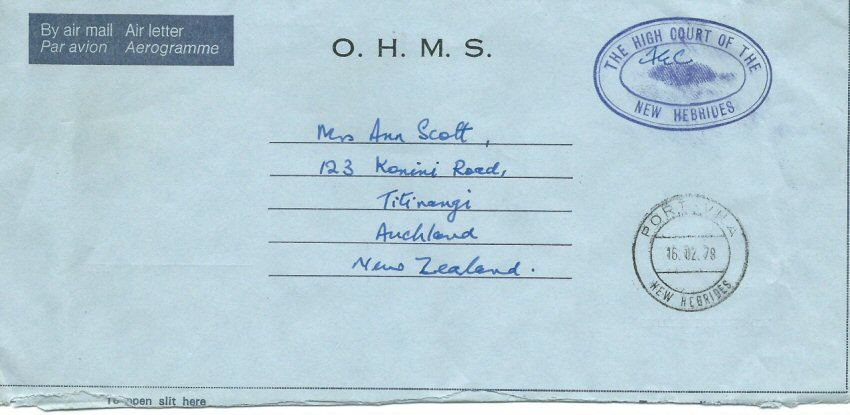 By air mail Air letter
Par avion Aerogramme
O. H. M. S.
THE HIGH COURT OF THE
NEW HEBRIDES
Mrs Ann Scott,
123 Konini Road,
Titirangi
Auckland
New Zealand.
PORT-VILA
16.02.78
NEW HEBRIDES
To open slit here